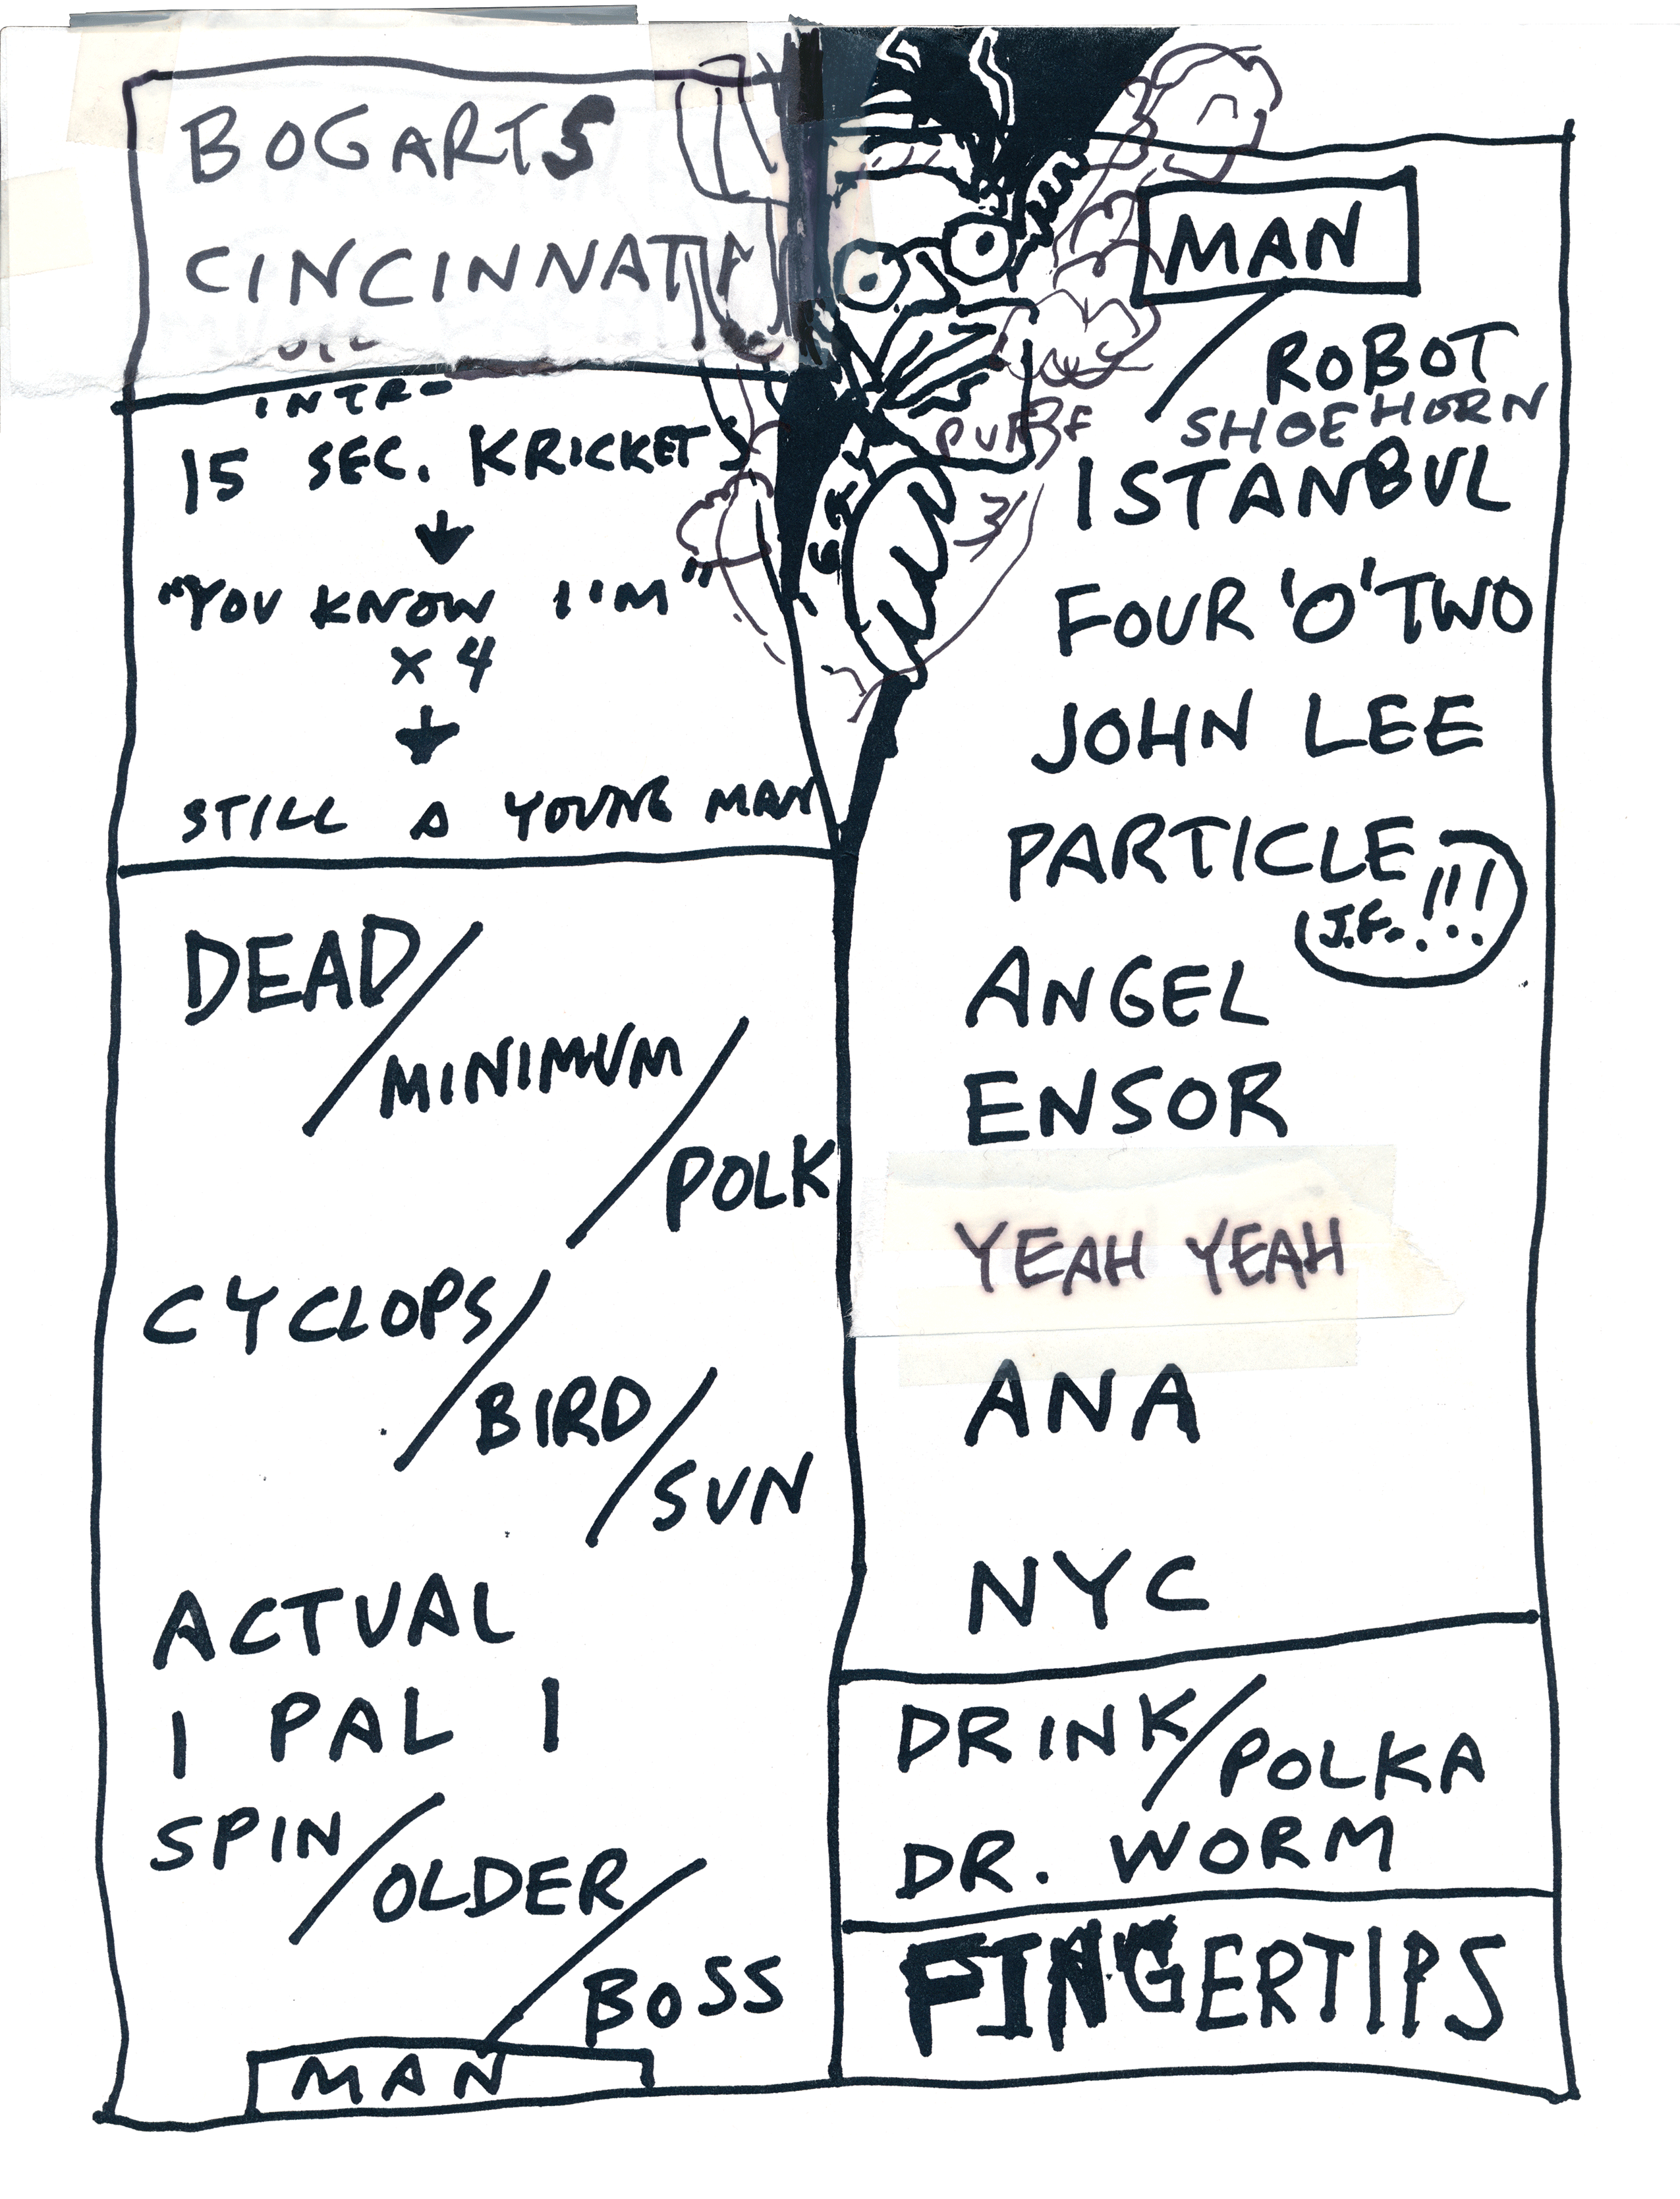 BOGARTS
CINCINNATI
INTRO
15 SEC. KRICKETS
"YOU KNOW I'M"
X 4
STILL A YOUNG MAN
DEAD/
MINIMUM/
POLK
CYCLOPS/
BIRD/
SUN
ACTUAL
I PAL I
SPIN/
OLDER/
BOSS
MAN
MAN
/ROBOT
SHOEHORN
ISTANBUL
FOUR 'O' TWO
JOHN LEE
PARTICLE
J.F. !!!
ANGEL
ENSOR
YEAH YEAH
ANA
NYC
DRINK/POLKA
DR. WORM
FINGERTIPS